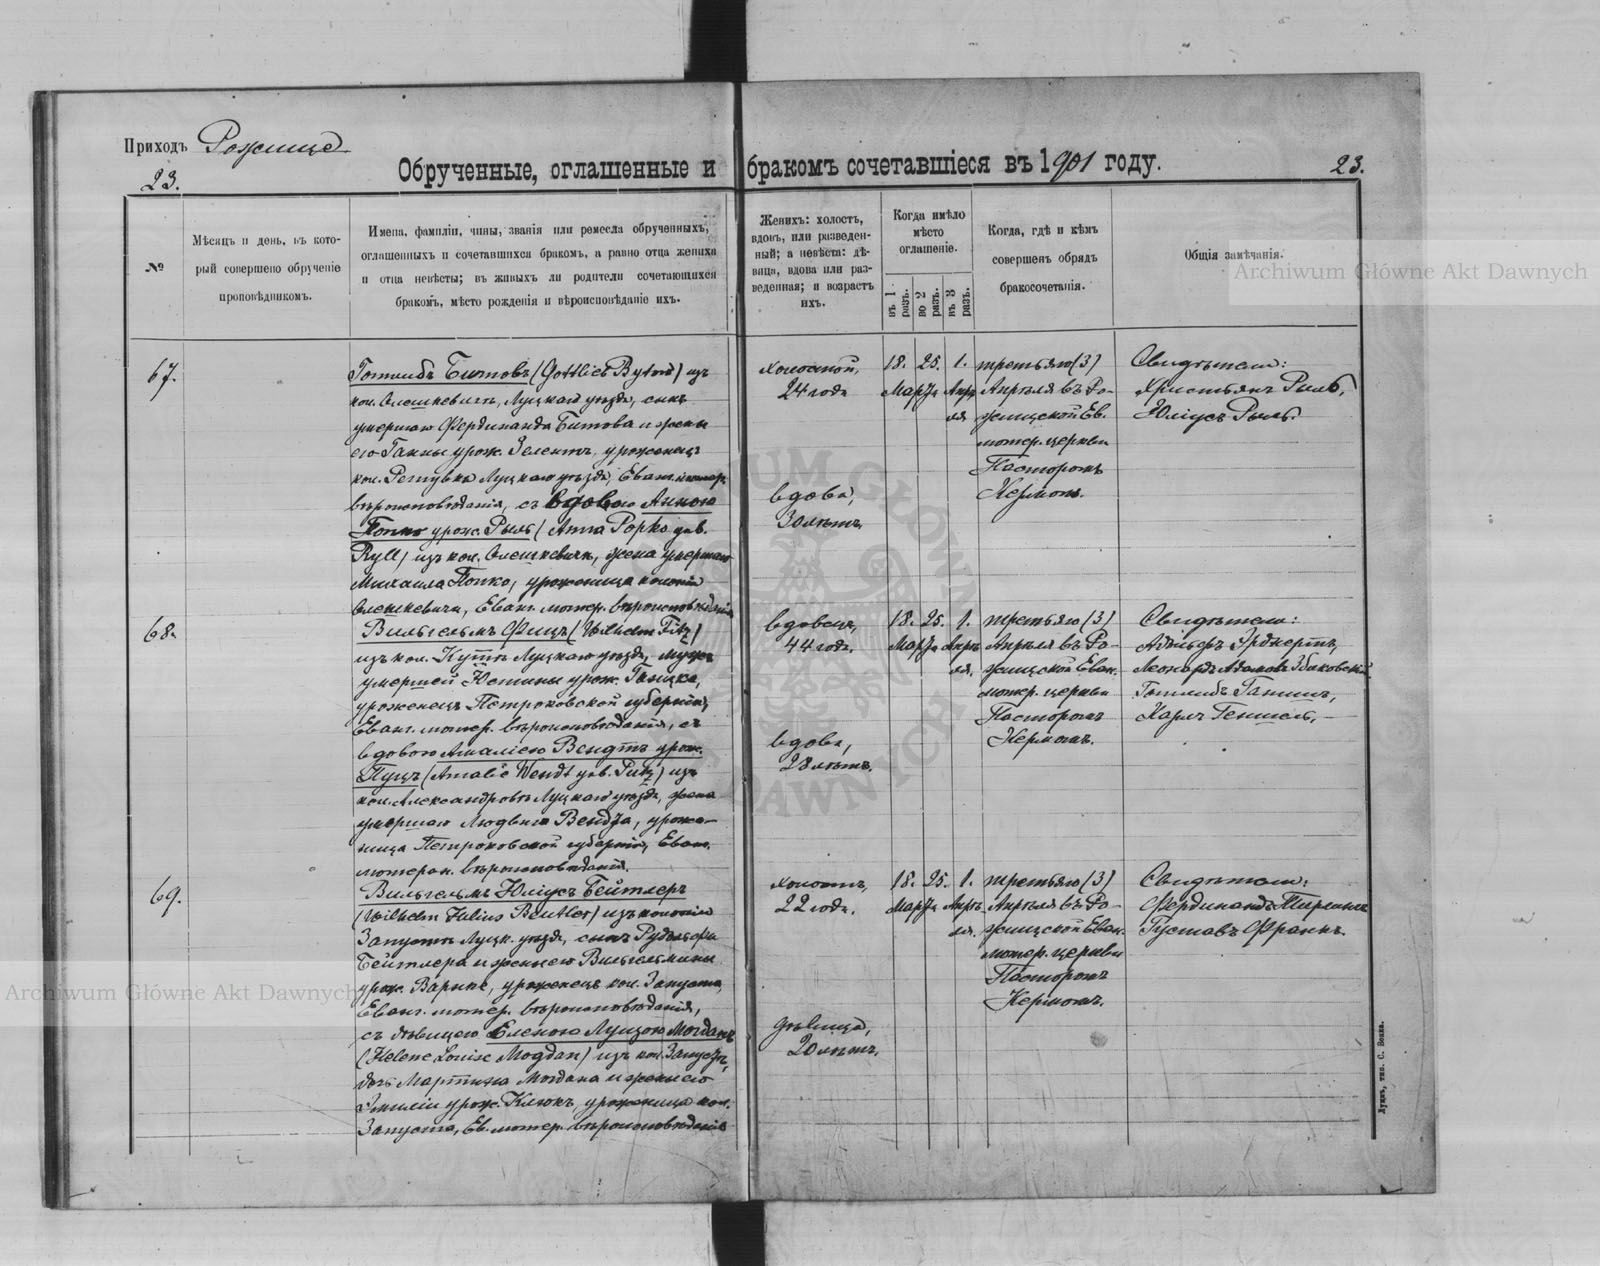 Приходъ Рожище
23.
Обрученные, оглашенные и бракомъ сочетавшіеся въ 1901 году.
23.
№
Мѣсяцъ и день, въ кото-
рый совершено обрученіе
проповѣдникомъ.
Имена, фамиліи, чины, званія или ремесла обрученныхъ,
оглашенныхъ и сочетавшихся бракомъ, а равно отца жениха
и отца невѣсты; въ живыхъ ли родители сочетающихся
бракомъ, мѣсто рожденія и вѣроисповѣданіе ихъ.
Женихъ: холостъ,
вдовъ, или разведен-
ный; а невѣста: дѣ-
вица, вдова или раз-
веденная; и возрастъ
ихъ.
Когда имѣло
мѣсто
оглашеніе.
въ 1 разъ.
во 2 разъ.
въ 3 разъ.
Когда, гдѣ и кѣмъ
совершенъ обрядъ
бракосочетанія.
Общія замѣчанія.
Archiwum Główne Akt Dawnych
67.
Готлибъ Битовъ (Gottlieb Bytow) изъ
кол. Олешкевичъ, Луцкаго уѣзда, сынъ
умершаго Фердинанда Битова и жены
его Ганны урож. Зелентъ, уроженецъ
Луцкаго уѣзда, Еванг. лютер.
вѣроисповѣданія, съ вдовою Анною
Попко урож. Рыль (Anna Popko geb.
Ryll) изъ кол. Олешкевичъ, жена умершаго
Михаила Попко, уроженица колоніи
Олешкевичи, Еванг. лютер. вѣроисповѣданія
холостой,
24 года
вдова,
30 лѣтъ.
18. 25. 1.
Марта Апрѣ-
ля
третьяго (3)
Апрѣля въ Ро-
жищской Ев.
лютер. церкви
Пасторомъ
Керномъ.
Свидѣтели:
Христьянъ Рыль,
Юліусъ Рыль.
68.
Вильгельмъ Фицъ (Wilhelm Fitz)
изъ кол. Луцкаго уѣзда, мужъ
умершей Юстины урож.
уроженецъ Петроковской губерніи,
Еванг. лютер. вѣроисповѣданія, съ
вдовою Амаліею Вендтъ урож.
Пуцъ (Amalie Wendt geb. Putz) изъ
кол. Луцкаго уѣзда, жена
умершаго Людвига Вендта, уроже-
ница Петроковской губерніи, Еванг.
лютеран. вѣроисповѣданія.
вдовецъ,
44 года.
вдова,
28 лѣтъ.
18. 25. 1.
Марта Апрѣ-
ля.
третьяго (3)
Апрѣля въ Ро-
жищской Еван.
лютер. церкви
Пасторомъ
Керномъ.
Свидѣтели:
Адольфъ
Леонардъ
Готлибъ
Карлъ Геншель, –
69.
Вильгельмъ Юліусъ Бейтлеръ
(Wilhelm Julius Beutler) изъ колоніи
Запустъ Луцк. уѣзда, сынъ Рудольфа
Бейтлера и жены его Вильгельмины
урож. Варнке, уроженецъ кол. Запуста,
Еванг. лютер. вѣроисповѣданія,
съ дѣвицею Еленою Луизою Могданъ
(Helene Louise Mogdan) изъ кол. Запустъ,
дочь Мартина Могдана и жены его
Эмиліи урож. Клюкъ, уроженица кол.
Запуста, Ев. лютер. вѣроисповѣданія
холостъ,
22 года.
дѣвица,
20 лѣтъ.
18. 25. 1.
Марта Апрѣ-
ля.
третьяго (3)
Апрѣля въ Ро-
жищской Еван.
лютер. церкви
Пасторомъ
Керномъ.
Свидѣтели:
Фердинандъ
Густавъ Франкъ.
Archiwum Główne Akt Dawnych